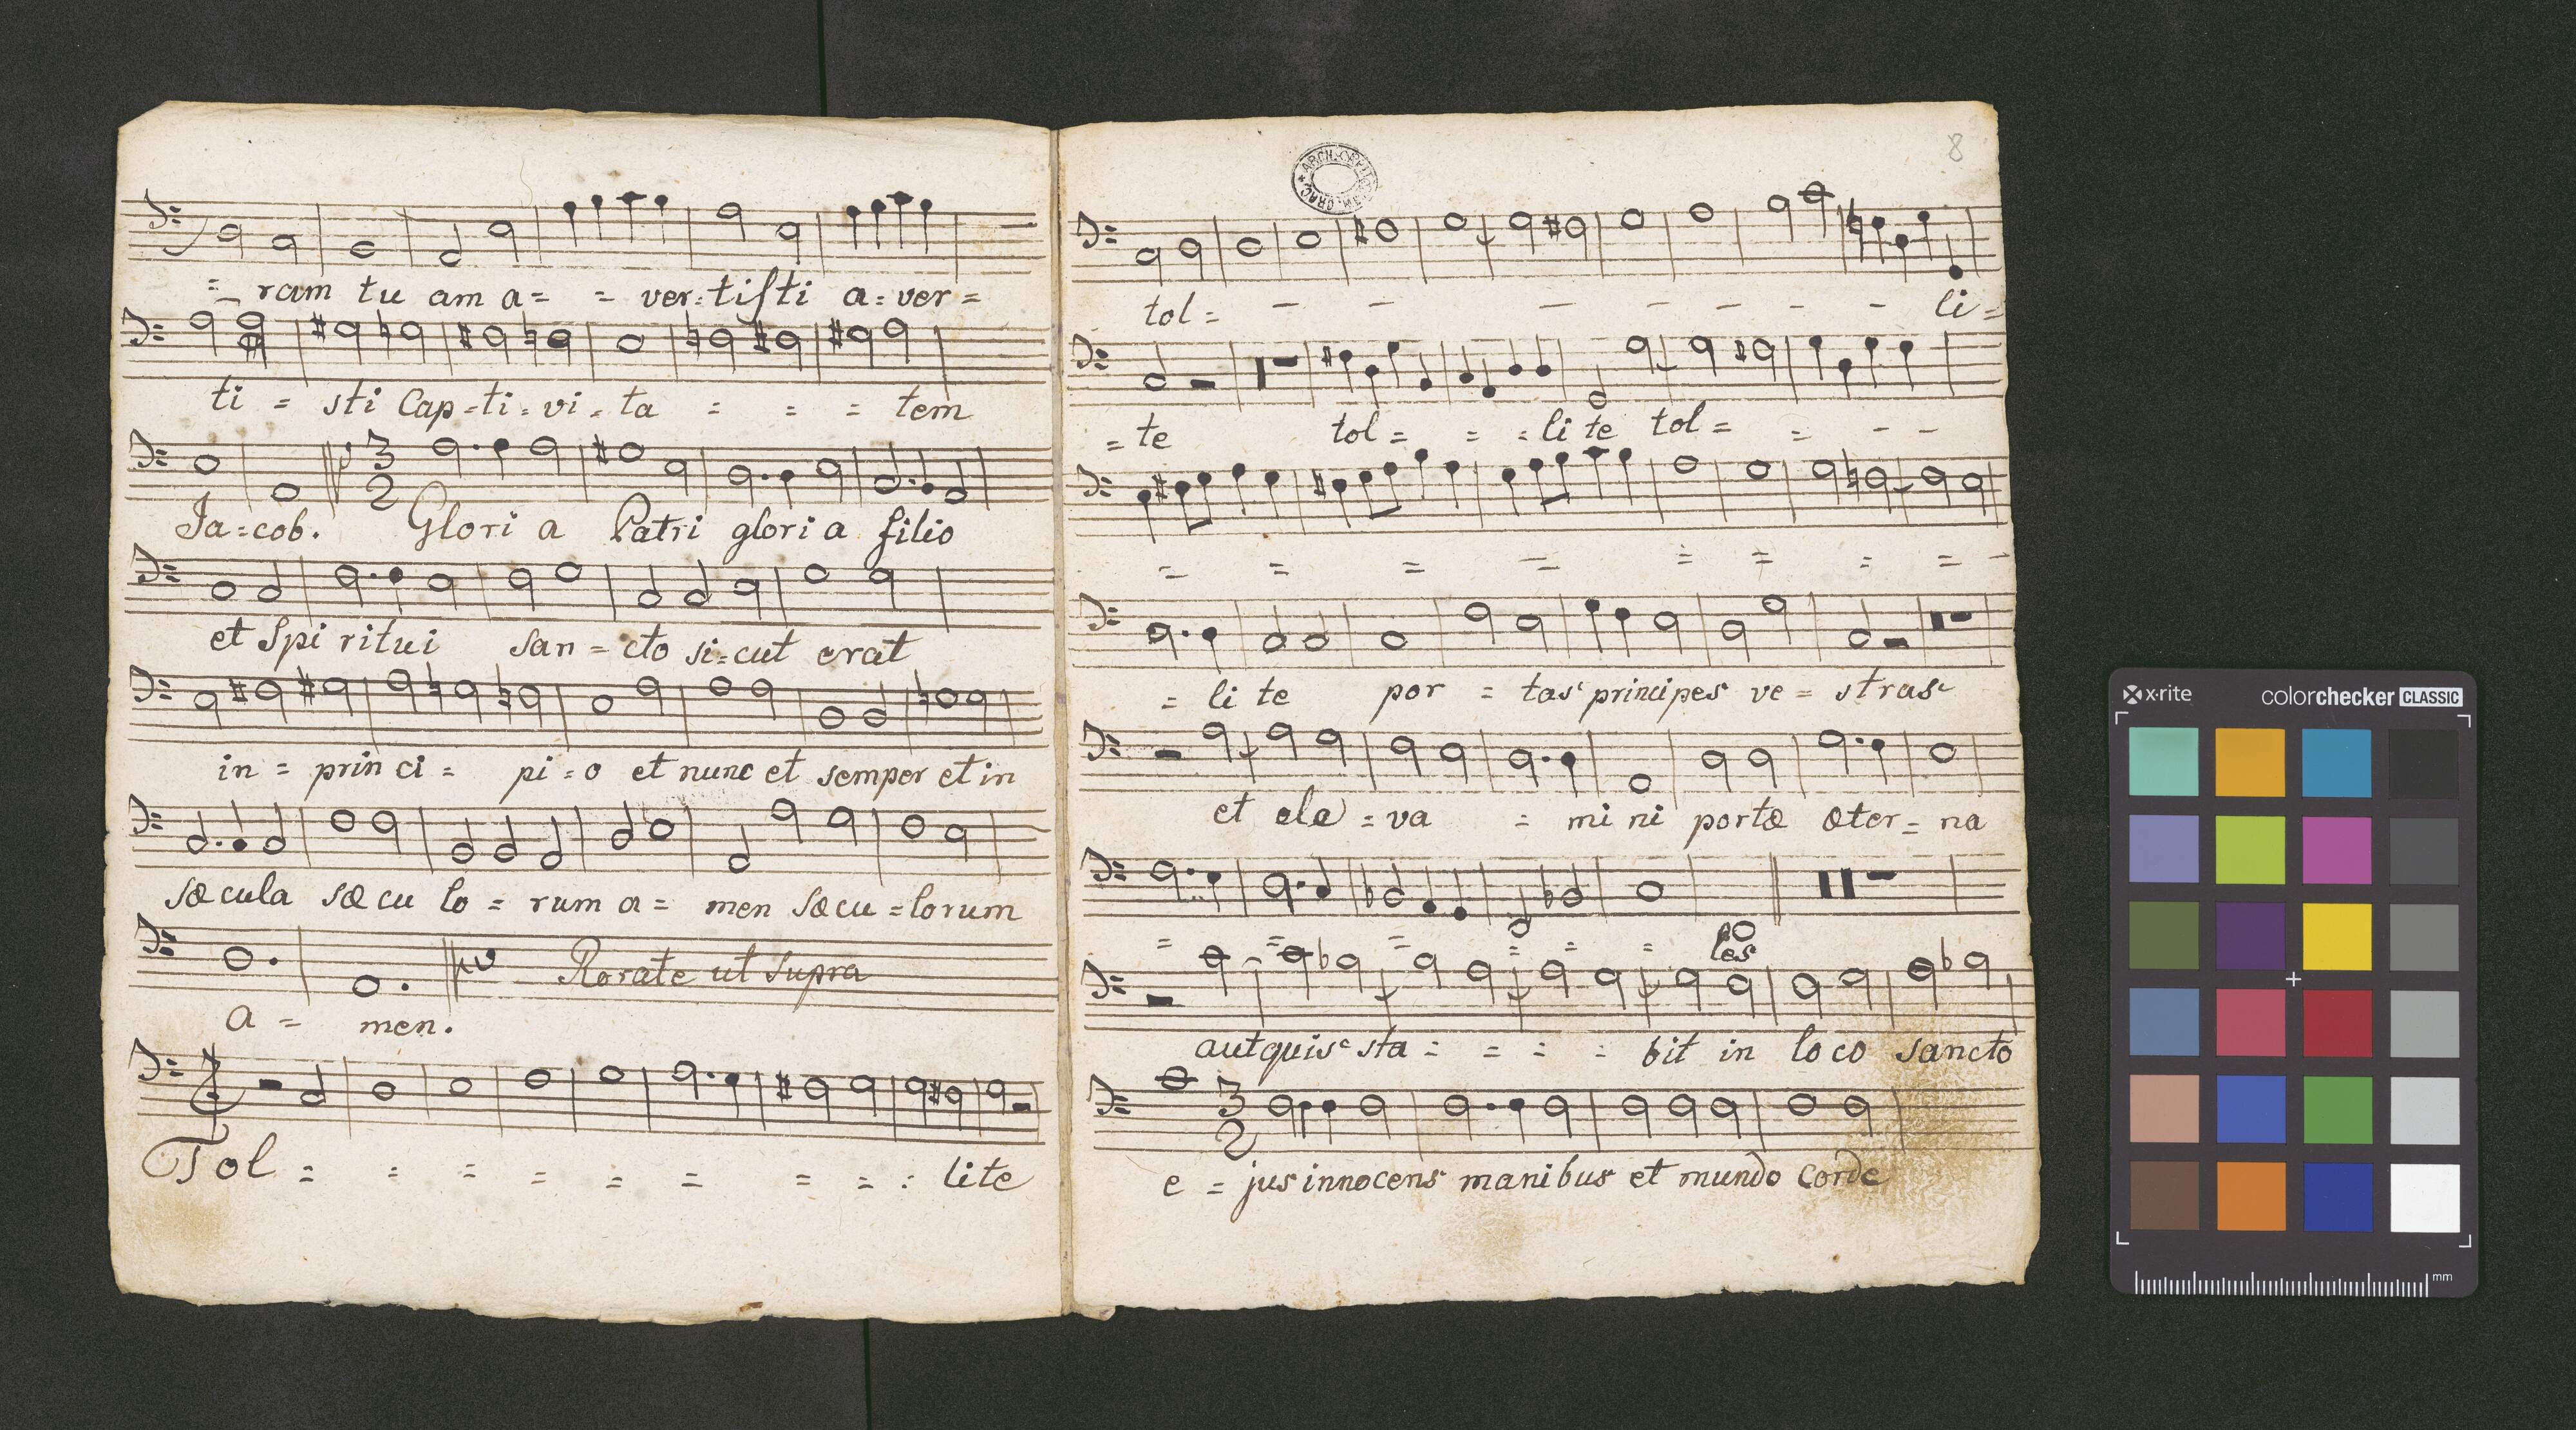 = ram tu am a= = ver=tisti a=ver=
ti = sti Cap=ti=vi=ta = = = tem
3
2
Ja=cob. Glori a Patri glori a filio
et Spi ritui san=cto si=cut erat
in = prin ci = pi=o et nunc et semper et in
sæcula sæ cu lo = rum a= men sæcu=lorum
Rorate ut supra
a = men.
Tol = = = = = = = = : lite
8
tol= - - - - - - - li=
=te tol= = =li te tol= = - -
= = = = = = = =
= li te por = tas principes ve = stras
et ele=va = mi ni portæ æter=na
= = = = = = les
aut quis sta = = = = bit in lo co sancto
3
2
e = jus innocens manibus et mundo corde
x-rite colorchecker CLASSIC
mm